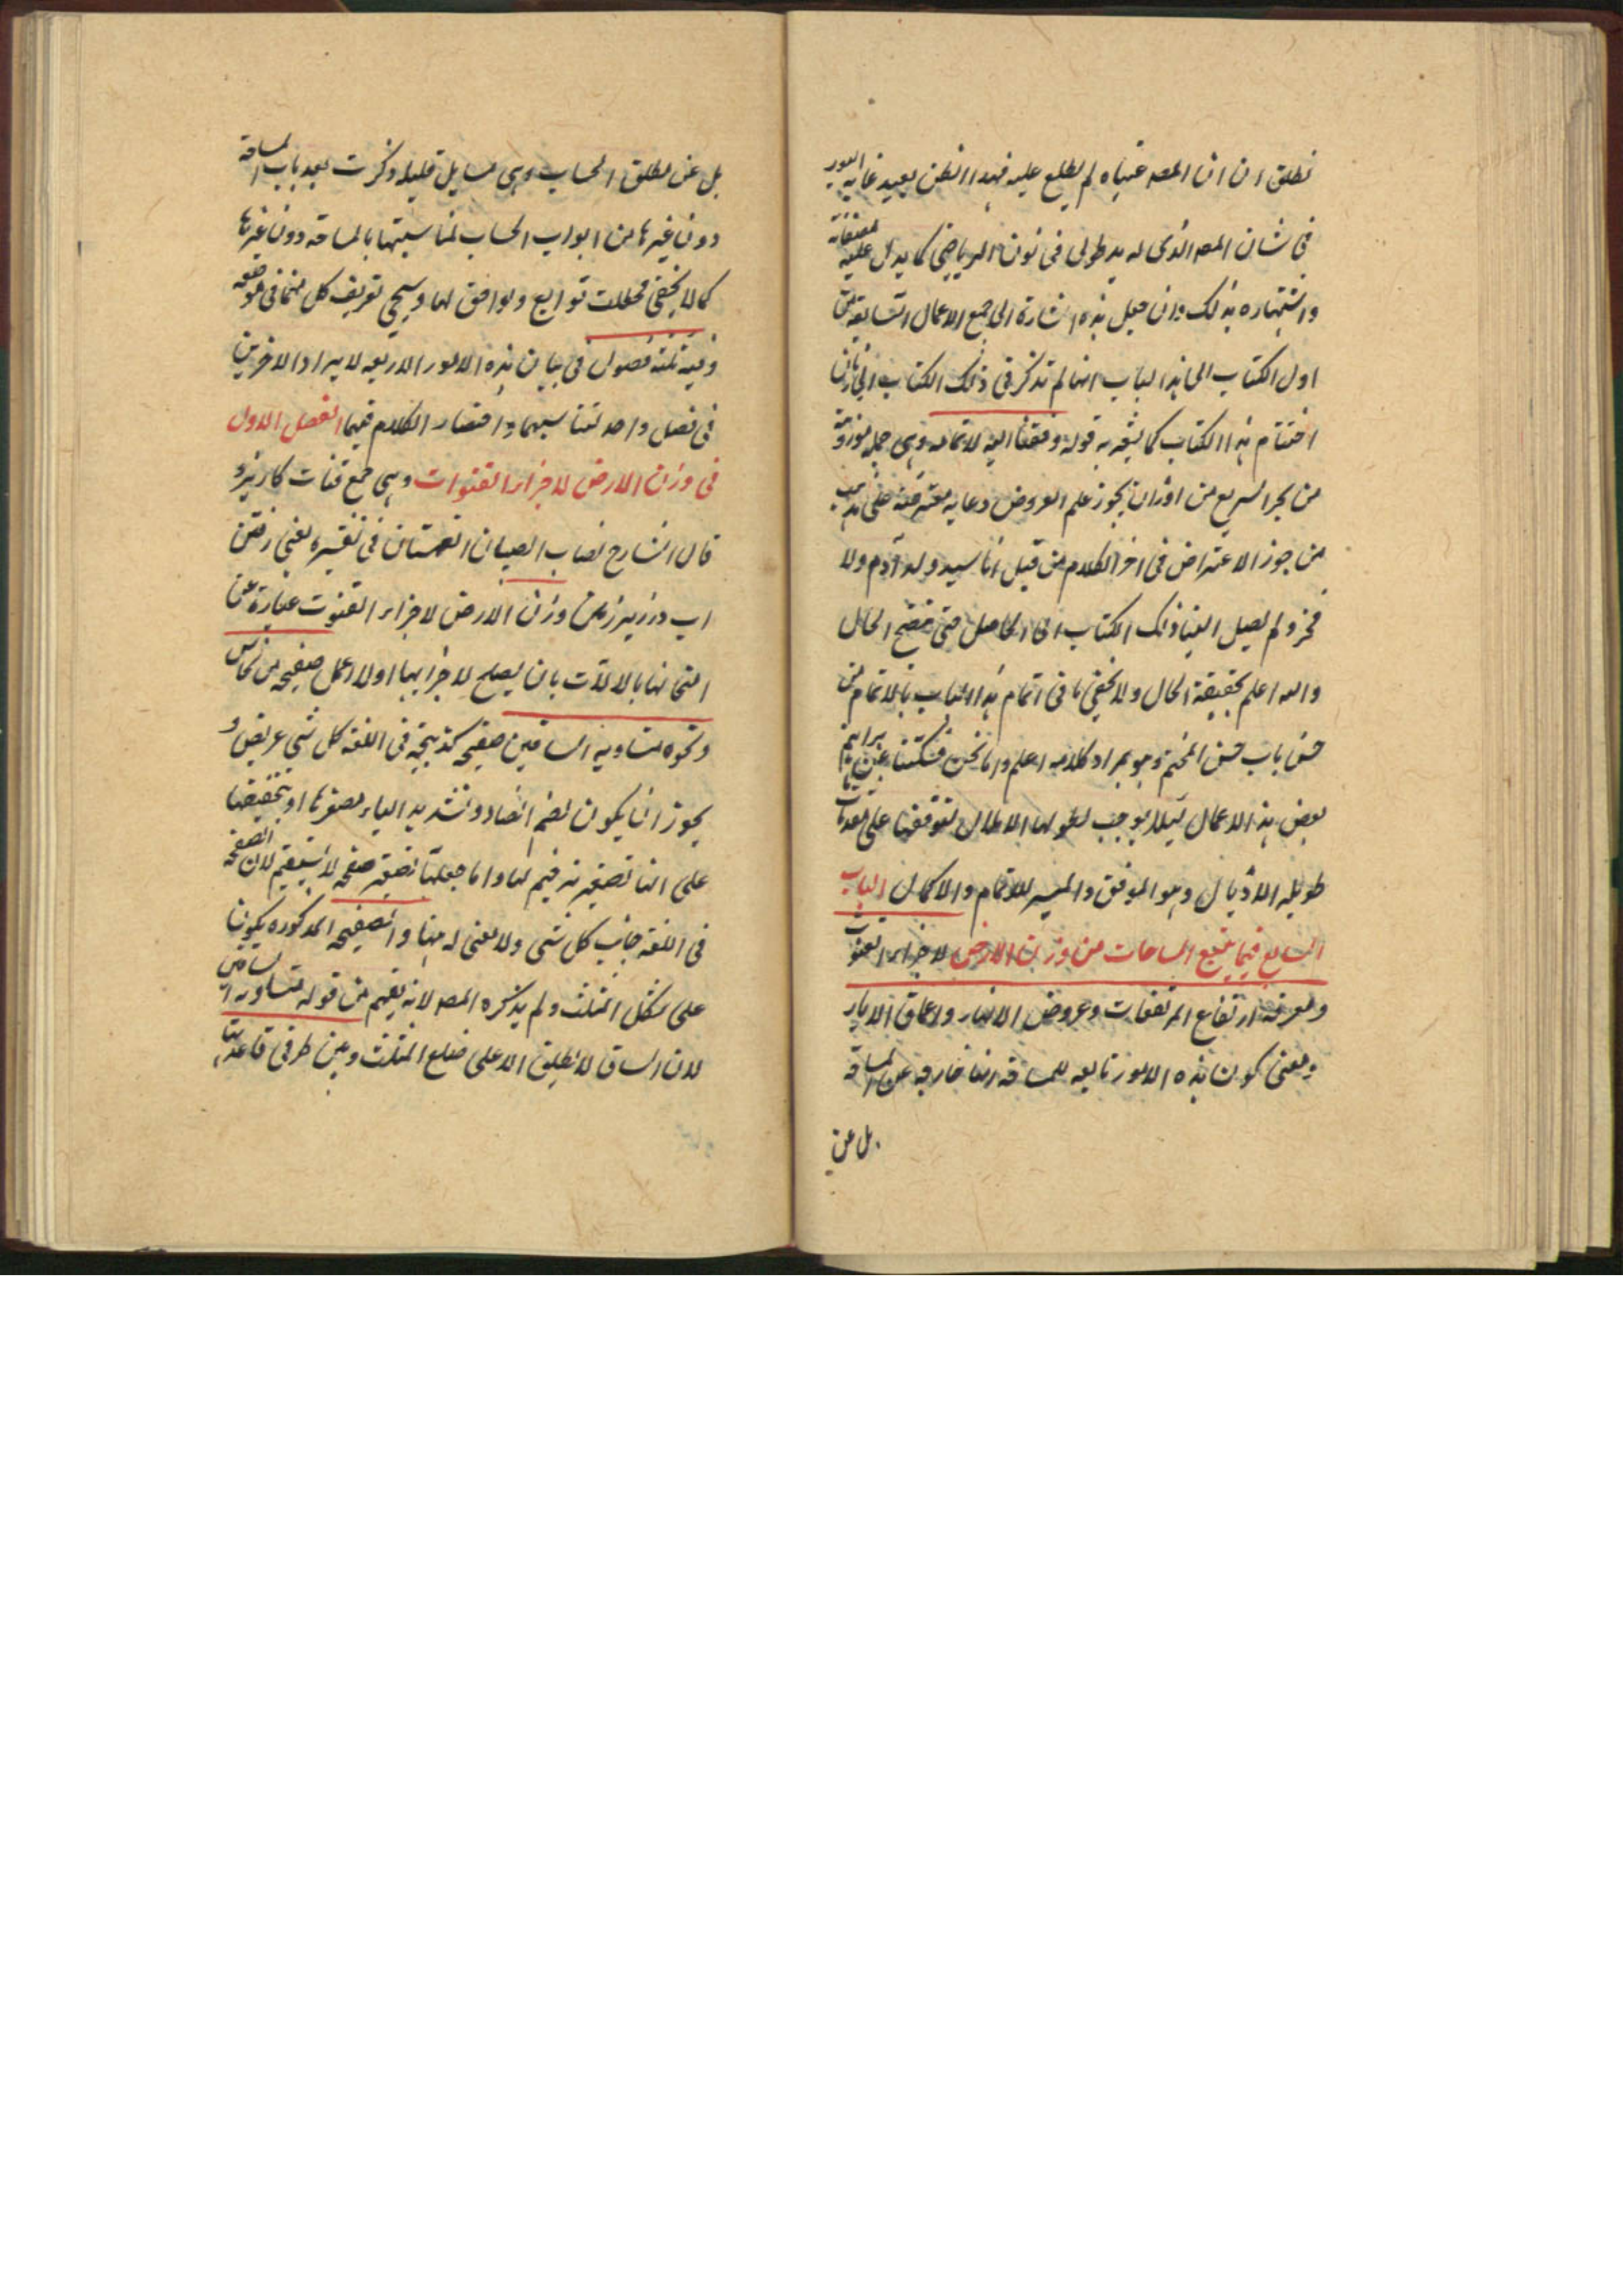 نطلق ان ان المصـ عنياه لم يطلع عليه فهذا الظن بعيد غاية البعد
فى شان المصـ الذى له يد طولى فى فنون الرياضى كما يدل عليه مصنفاته
واشتهاره بذلك وان جعل هذه اشارة الى جميع الاعمال السابقة من
اول الكتاب الى هذا الباب انها لم تذكر فى ذلك الكتاب الى زمان
اختتام هذا الكتاب كما يشعر به قوله وفقنا الله لاتمامه وهى جملة موزونة
من بحر السريع من اوزان بحور علم العروض دعاية معترضة على مذهب
من جوز الاعتراض فى اخر الكلام من قبيل انا سيد ولد آدم ولا
فخر ولم يصل الينا ذلك الكتاب الى الحاصل حتى يتضح الحال
والله اعلم بحقيقة الحال ولا يخفى ما فى اتمام هذا الباب بالاتمام من
حسن باب حسن المختم وهو بمراد كلامه اعلم وانا نحن فسكتنا عن براهين
بعض هذه الاعمال ليلا يوجب لطولها الاملال لتوقفها على مقدمات
طويلة الاذيال وهو الموفق والميسر للاتمام والاكمال الباب
السابع فيما يتبع المساحات من وزن الارض لاجراء القنوات
ومعرفة ارتفاع المرتفعات وعروض الانهار واعماق الابار
ومعنى كون هذه الامور تابعه للمساحة انها خارجه عن المساحة
بل عن
بل عن مطلق الحساب وهى مسايل قليلة ذكرت بعد باب المساحة
دون غيرها من ابواب الحساب لمناسبتها بالمساحة دون غيرها
كما لا يخفى فجعلت توابع ولواحق لها وسيجى تعريف كل منها فى موضعه
وفيه ثلثة فصول فى بيان هذه الامور الاربعه لايراد الاخرين
فى فصل واحد لتناسبهما واختصار الكلام فيهما الفصل الاول
فى وزن الارض لاجراء القنوات وهى جمع قنات كاريز و
قال الشارح نصاب الصبيان القهستانى فى تفسيره يعنى رفتن
اب در زير زمين وزن الارض لاجراء القنوت عبارة عن
امتحانها بالالات بان يصلح لاجرايها اولا اعمل صفيحه من نحاس
ونحوه متساوية الساقين صفيحه كذبيحة فى اللغة كل شى عريض و
يجوز ان يكون بضم الصاد وتشديد الياء مصغرها او بتخفيفها
على انها تصغير ترخيم لها واما جعلها تصغير صفحه لا يستقيم لان الصفحه
فى اللغة جانب كل شى ولا معنى له هنا والصفيحه المذكوره يكون
على شكل المثلث ولم يذكره المصـ لانه يفهم من قوله متساوية الساقين
لان الساق لا يطلق الا على ضلع المثلث وبين طرفى قاعدتها